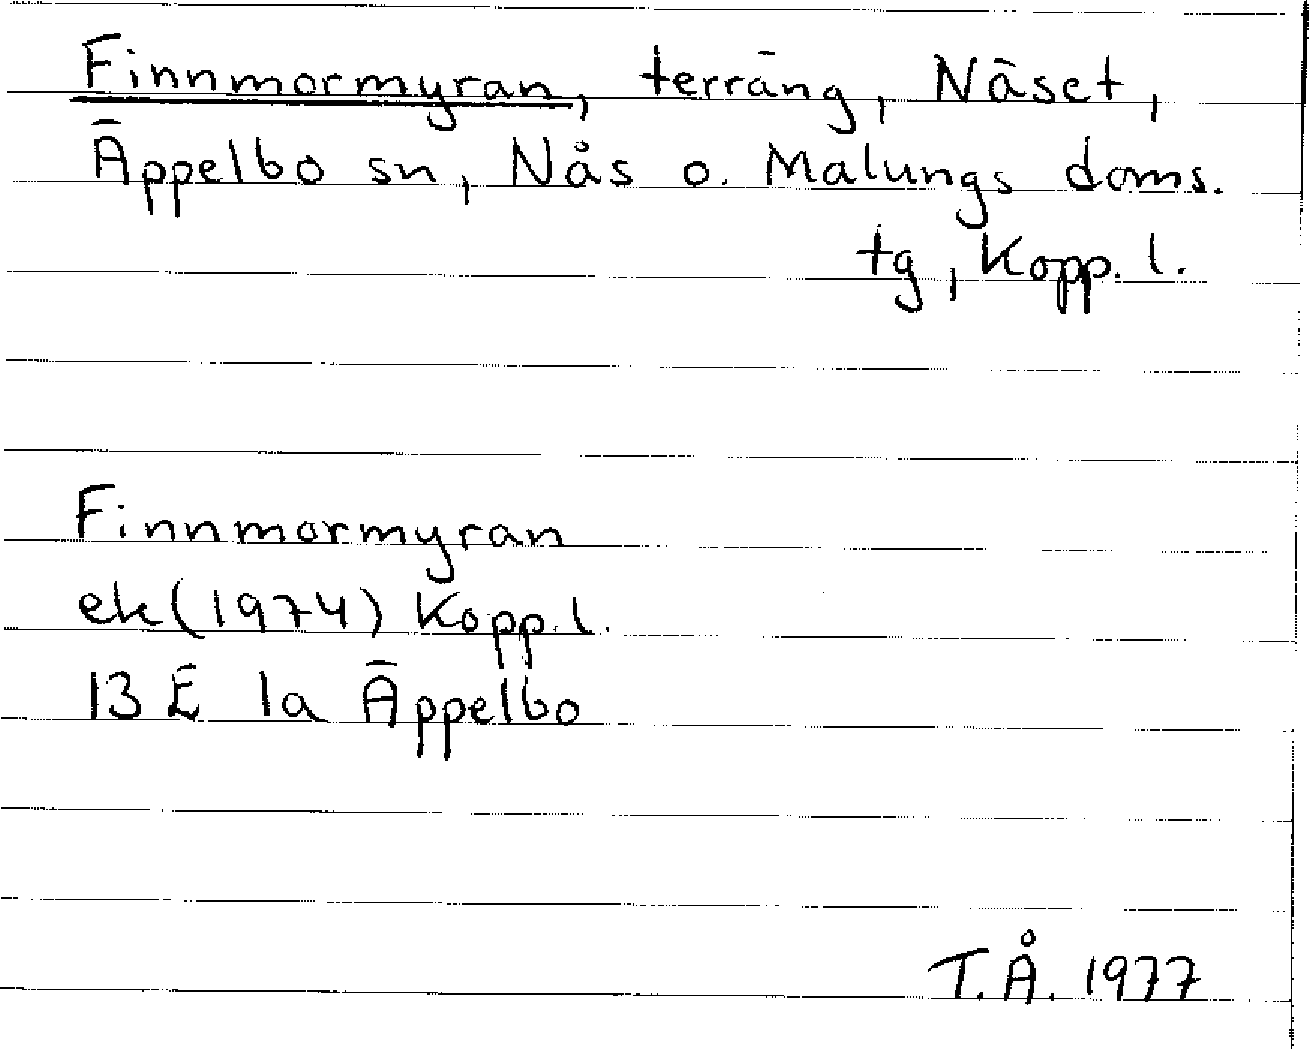 Finnmormyran, terräng, Näset,
Äppelbo sn, Nås o. Malungs doms.
tg, Kopp. l.
Finnmormyran
ek (1974) Kopp. l.
13 E 1a Äppelbo
T.Å. 1977